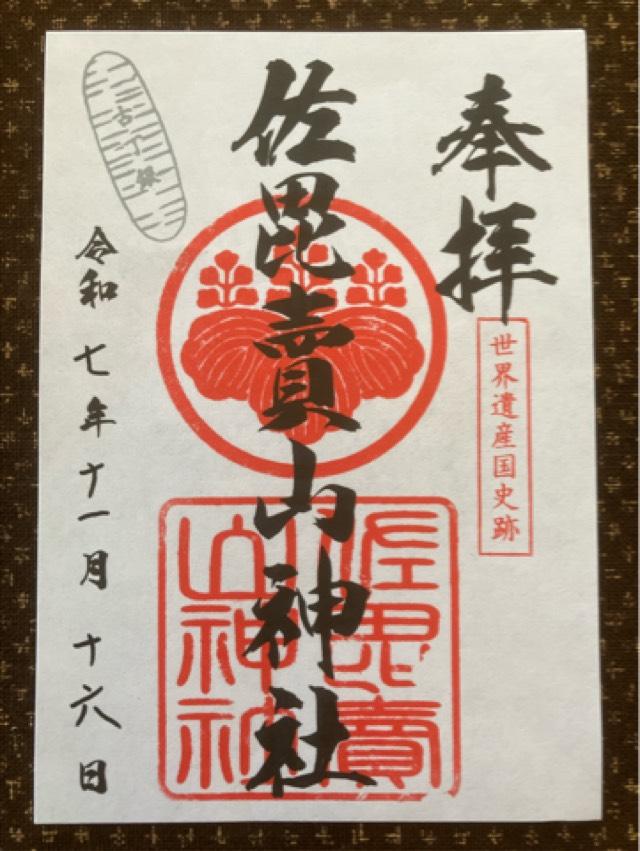 奉拝
世界遺産国史跡
佐毘賣山神社
佐毘賣山神社
古丁銀
令和七年十一月十六日